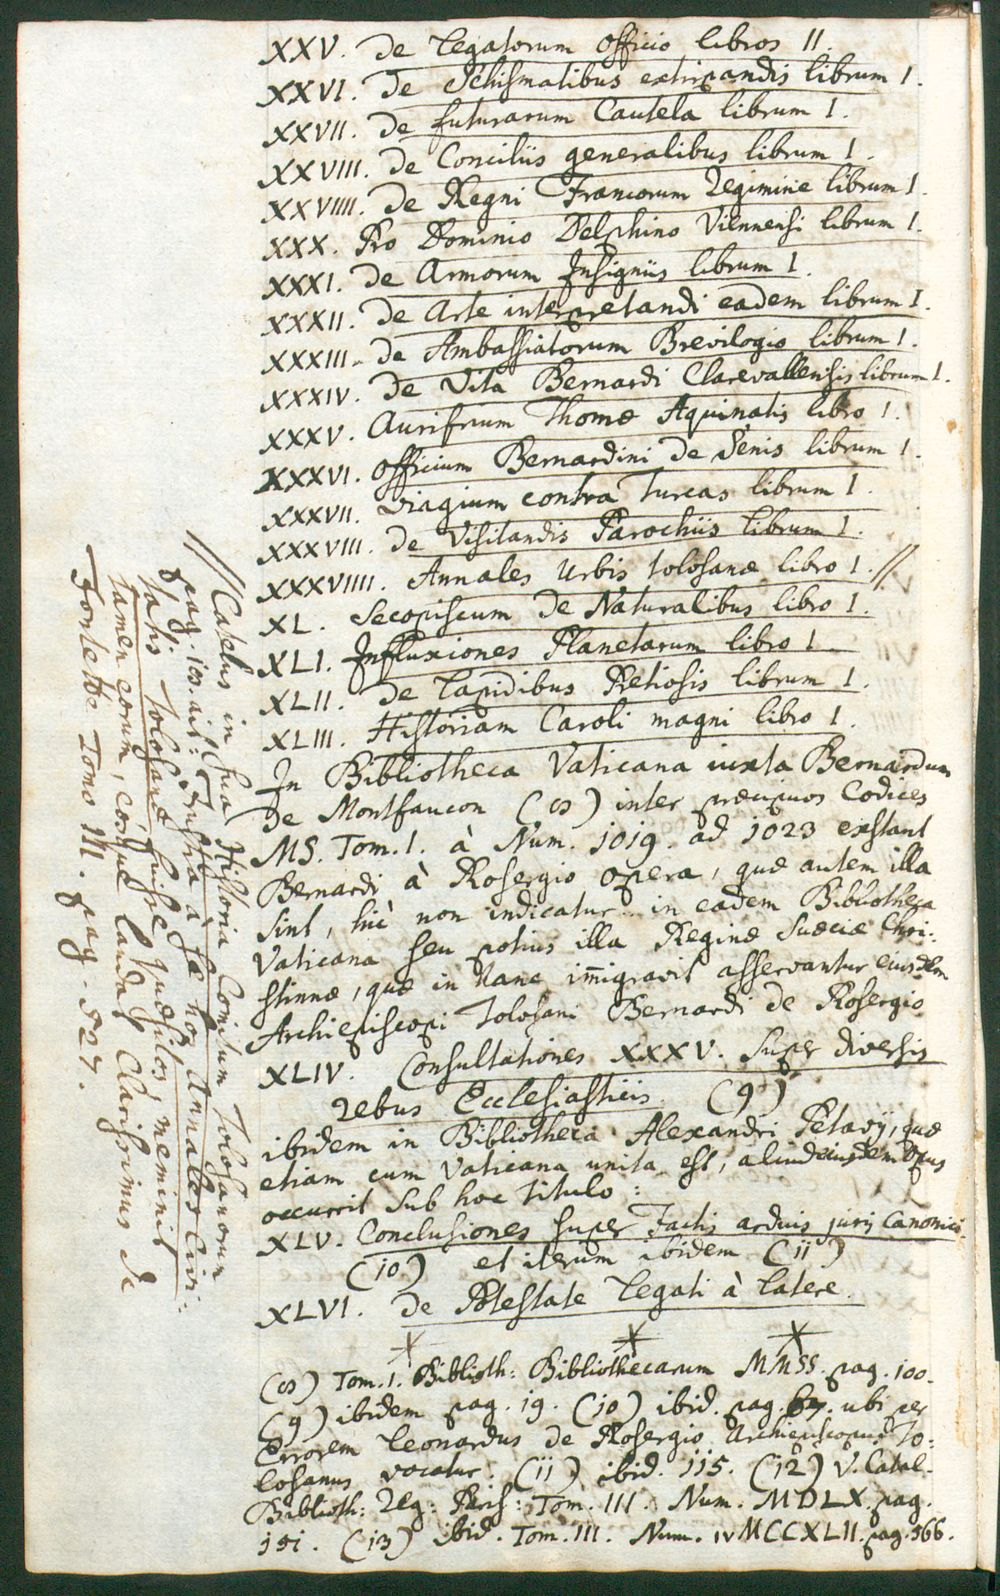 XXV. De Legatorum officio libros II.
XXVI. De Schismatibus extirpandis librum I.
XXVII. De futurarum Cautela librum I.
XXVIII. De Conciliis generalibus librum I.
XXVIIII. De Regni Francorum Regimine librum I.
XXX. Pro Dominio Delphino Viennensi librum I.
XXXI. De Armorum Insigniis librum I.
XXXII. De Arte interpretandi eadem librum I.
XXXIII. De Ambassiatorum Brevilogio librum I.
XXXIV. De Vita Bernardi Clarevallensis librum I.
XXXV. Aurifrium Thomæ Aquinatis libro I.
XXXVI. Officium Bernardini de Senis librum I.
XXXVII. Viagium contra Turcas librum I.
XXXVIII. De Visitandis Parochiis librum I.
XXXVIIII. Annales Urbis tolosanæ libro I. //
XL. Secopiscum de Naturalibus libro I.
XLI. Influxiones Planetarum libro I
XLII. De Lapidibus Pretiosis librum I.
XLIII. Historiam Caroli magni libro I.
In Bibliotheca Vaticana iuxta Bernardum
de Montfaucon (8) inter præcipuos Codices
MS. Tom. I. à Num. 1019. ad 1023 exstant
Bernardi à Rosergio opera, quæ autem illa
sint, hic non indicatur. in eadem Bibliotheca
Vaticana seu potius illa Reginæ Sueciæ Chri:
stinnæ, quæ in hanc immigravit asservantur eiusdem
Archiepiscopi Tolosani Bernardi de Rosergio
XLIV. Consultationes XXXV. super diversis
rebus Ecclesiasticis (9)
ibidem in Bibliotheca Alexandri Petavij, quæ
etiam cum Vaticana unita est, aliud eiusdem Opus
occurrit sub hoc titulo:
XLV. Conclusiones super Factis arduis juris Canonici.
(10) et iterum ibidem (11)
XLVI. De Potestate Legati à Latere.
(8) Tom. I. Biblioth: Bibliothecarum MMSS. pag. 100.
(9) ibidem pag. 19. (10) ibid. pag. 67. ubi per
Errorem Leonardus de Rosergio Archiepiscopus To:
losanus vocatur. (11) ibid. 115. (12) V. Catal.
Biblioth: Reg: Paris: Tom. III. Num. MDLX. pag.
151. (13) ibid. Tom. III. Num. IVMCCXLII. pag. 566.
// Catelus in sua Historia Comitum Tolosanorum
pag. 108. ait: Infra à se hos Annales Civi:
tatis Tolosanæ fuisse, meminit
tamen eorum, eosque laudat Clarissimus de
Fontette Tomo III. pag. 527.